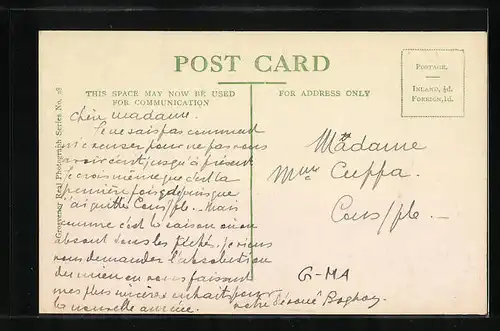 POST CARD
THIS SPACE MAY NOW BE USED
FOR COMMUNICATION
FOR ADDRESS ONLY
POSTAGE.
INLAND, ½d.
FOREIGN, 1d.
Grosvenor Real Photograph Series No. 28
Chère madame.
Je ne sais pas comment
m'excuser pour ne pas vous
avoir écrit jusqu'à présent
je crois même que c'est la
première fois depuis que
j'ai quitté Cons/ple. Mais
comme c'est la saison où on
absout tous les péchés. je viens
vous demander l'absolution
du mien en vous faisant
mes plus sincères souhaits pour
la nouvelle année.
votre dévoué
Madame
Mme Cuppa.
Cons/ple. —
G-MA